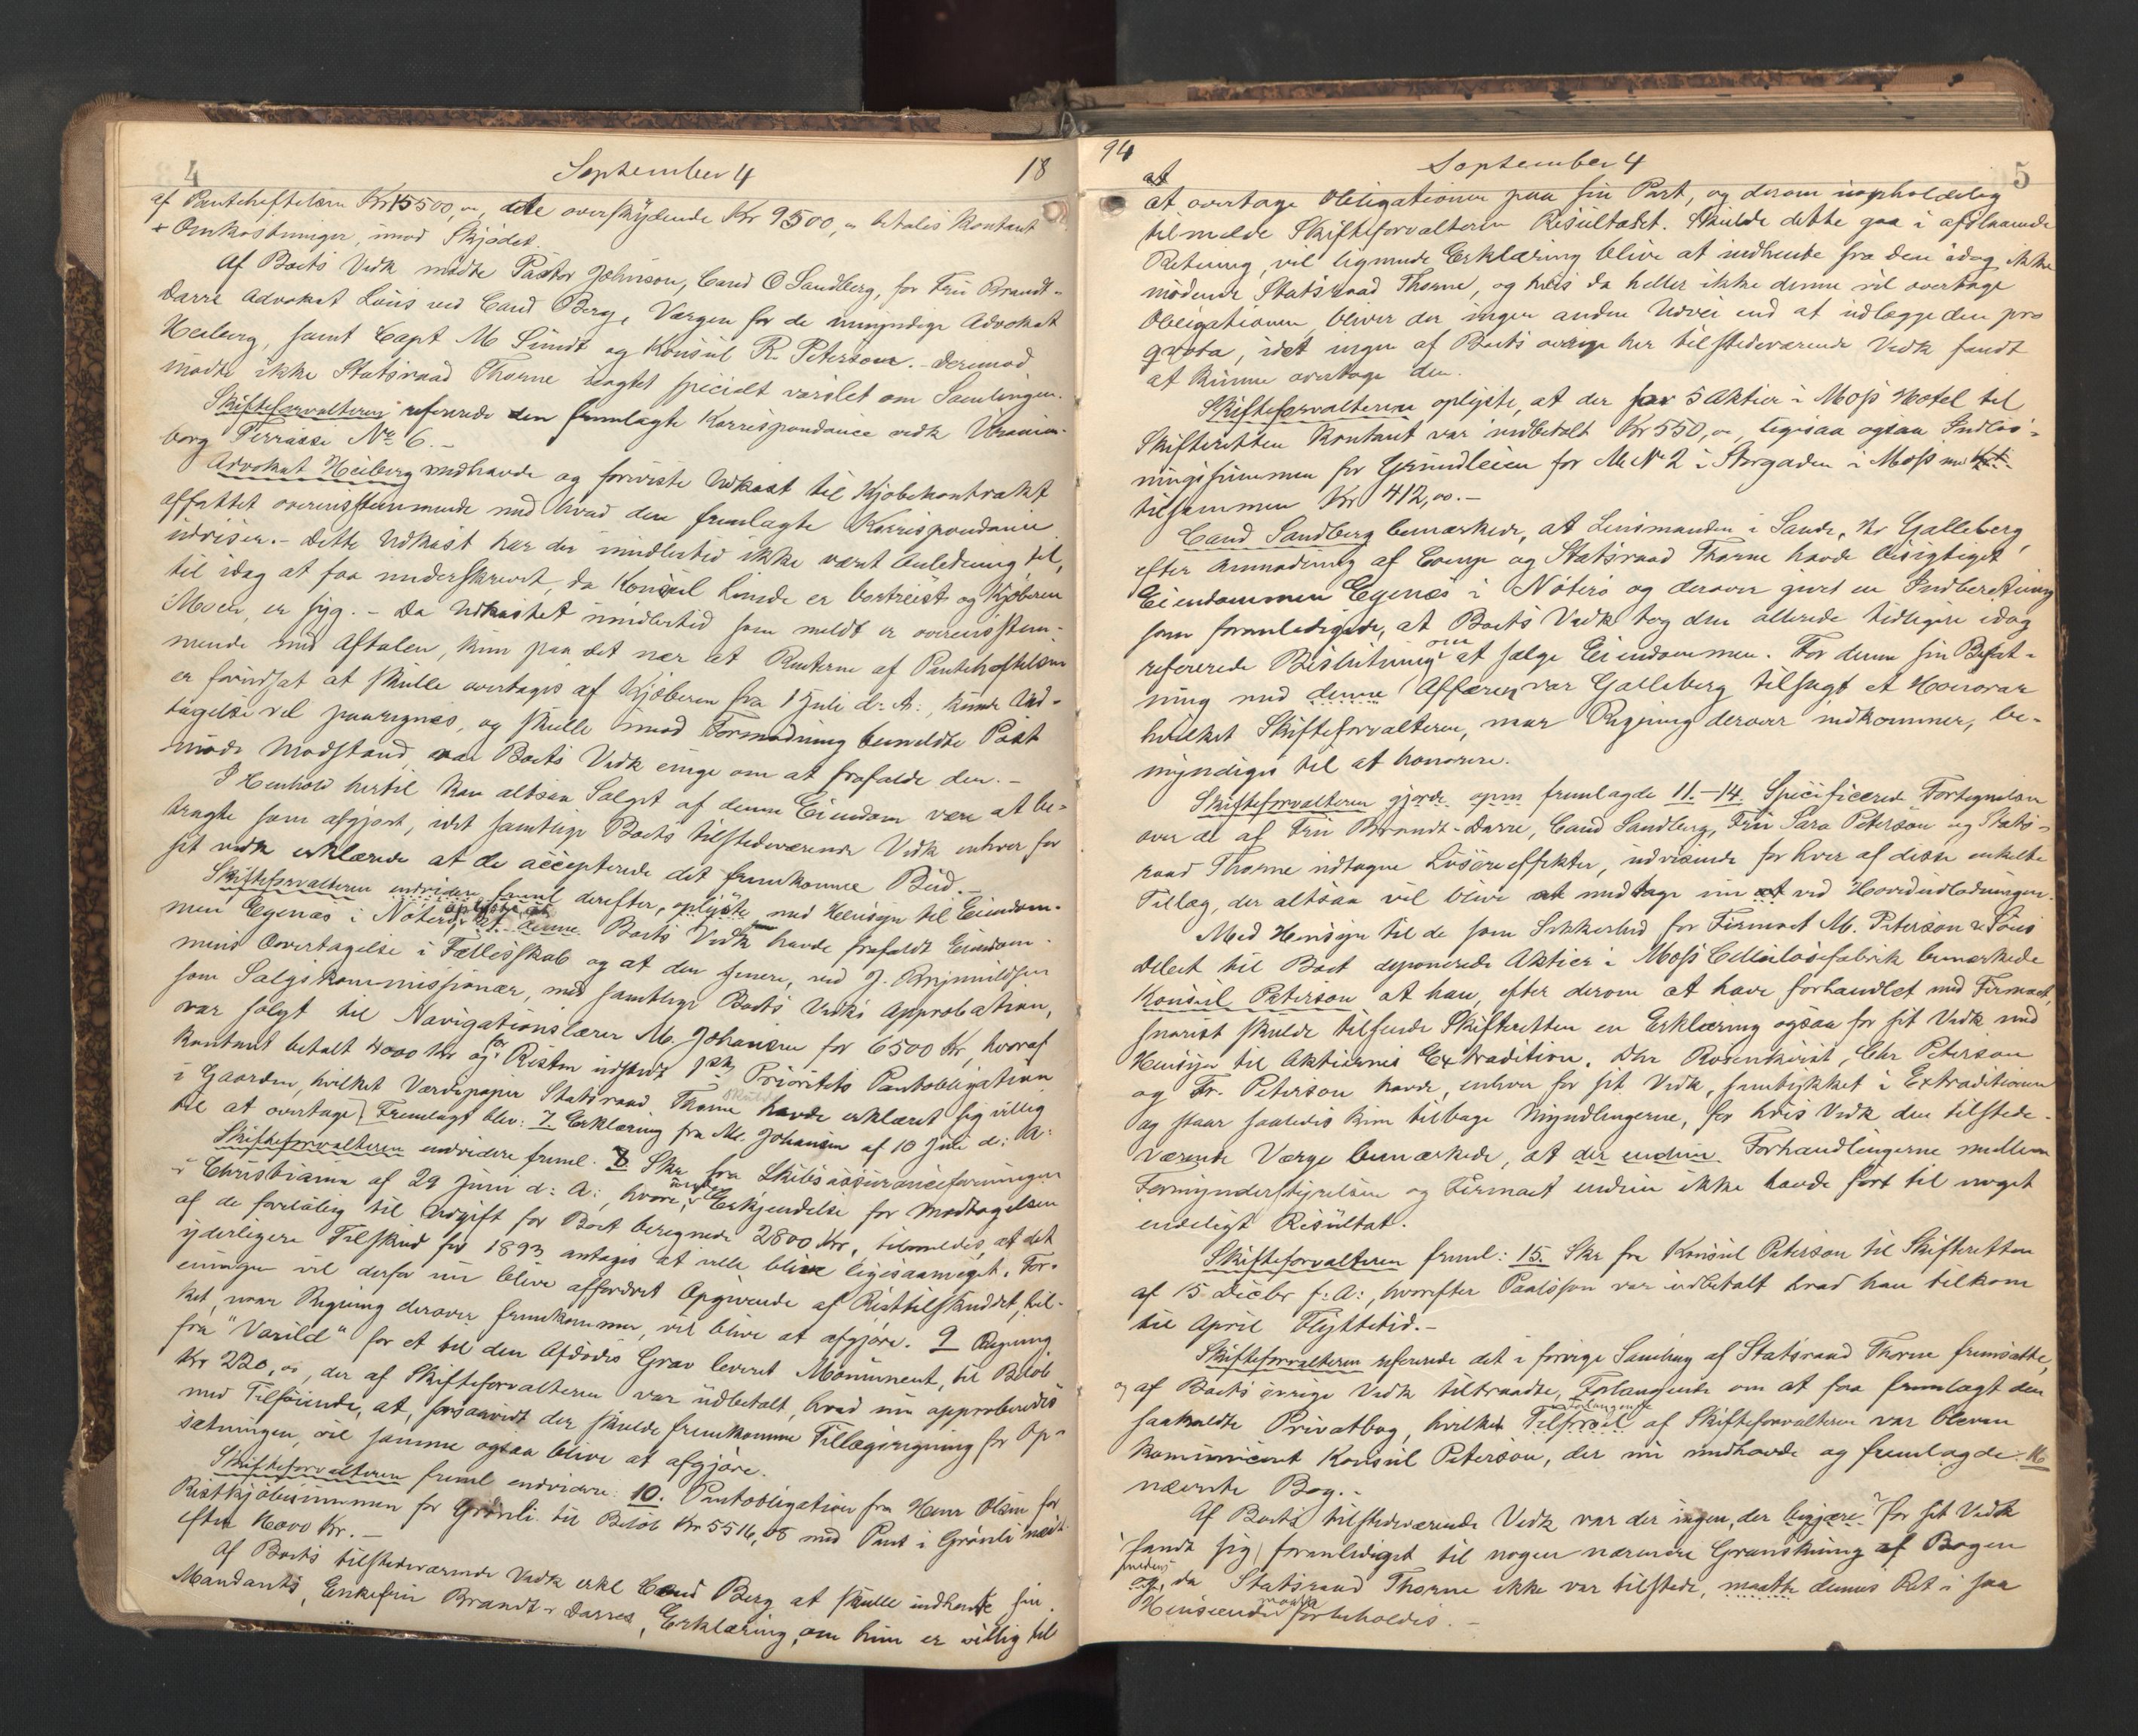 4
September 4
18
af Panteheftelsen Kr 15500,00, dele overskydende Kr 9500,00 betales kontant
+ Omkostninger, imod Skjødet.
Af Boets Vedk mødte Pastor Johnson, Cand O Sandberg, for Fru Brandt-
Darre Advokat Louis ved Cand Berg, Værgen for de umyndige Advokat
Heiberg, samt Capt M Sundt og Konsul R. Peterson. - Derimod
mødte ikke Statsraad Thorne uagtet specielt varslet om Samlingen.
Skifteforvalteren refererede den fremlagte Korrespondance vedk Uranien-
borg Terrasse No 6. -
Advokat Heiberg medhavde og foreviste Udkast til Kjøbekontrakt
affattet overensstemmende med hvad den fremlagte Korrespondance
udviser. - Dette Udkast har der imidlertid ikke været Anledning til,
til idag at faa underskrevet, da Konsul Linde er bortreist og Kjøberen
Moen, er syg. - Da Udkastet imidlertid som meldt er overensstem-
mende med Aftalen, kun paa det nær at Renterne af Panteheftelsen
er forudsat at skulle overtages af Kjøberen fra 1 Juli d: A:, kunde And-
tagelse vel paaregnes, og skulle imod Formodning bemeldte Post
møde Modstand, var Boets Vedk enige om at frafalde den. -
I Henhold hertil kan altsaa Salget af denne Eiendom være at be-
tragte som afgjort, idet samtlige Boets tilstedeværende Vedk enhver for
sit vedk erklærede at de accepterede det fremkomne Bud. -
Skifteforvalteren endvidere freml derefter, oplyste med Hensyn til Eiendom-
men Egenæs i Nøterø, oplyste, at denne Boets Vedk havde frafaldt Eiendom-
mens Overtagelse i Fællesskab og at den senere, ved J. Brynildsen
som Salgskommissionær, med samtlige Boets Vedks Approbation,
var solgt til Navigationslærer M. Johansen for 6500 Kr, hvoraf
kontant betalt 4000 Kr og for Resten udstedt 1ste Prioritets Pantobligation
i Gaarden, hvilket Værdipapir Statsraad Thorne skulde havde erklæret sig villig
til at overtage. Fremlagt blev: 7. Erklæring fra M. Johansen af 10 Juli d: A:
Skifteforvalteren endvidere freml. 8. Skr fra Skibsassuranceforeningen
i Christiania af 29 Juni d: A:, hvori, under Erkjendelse for Modtagelsen
af de foreløbig til Udgift for Boet beregnede 2800 Kr, tilmeldes, at det
yderligere Tilskud for 1893 antages at ville blive ligesaameget. For-
eningen vil derfor nu blive affordret Opgivende af Resttilskuddet, hvil-
ket, naar Regning derover fremkommer, vil blive at afgjøre. 9 Regning
fra "Varild" for et til den Afdødes Grav leveret Monument, til Beløb
Kr 220,00, der af Skifteforvalteren var udbetalt, hvad nu approberedes
med Tilføiende, at, forsaavidt der skulde fremkomme Tillægsregning for Op-
sætningen, vil samme ogsaa blive at afgjøre.
Skifteforvalteren freml endvidere: 10. Pantobligation fra Henr Olsen for
Restkjøbesummen for Grønli til Beløb Kr 5516,08 med Pant i Grønli næst
efter 16000 Kr. -
Af Boets tilstedeværende Vedk erkl Cand Berg at skulle indhente sin
Mandants, Enkefru Brandt-Darres, Erklæring, om hun er villig til
94
September 4
5
at
at overtage Obligationen paa sin Part, og derom uopholdelig
tilmelde Skifteforvalteren Resultatet. Skulde dette gaa i afslaaende
Retning, vil lignende Erklæring blive at indhente fra den idag ikke
mødende Statsraad Thorne, og hvis da heller ikke denne vil overtage
Obligationen, bliver der ingen anden Udvei end at udlægge den pro
qvota, idet ingen af Boets øvrige her tilstedeværende Vedk fandt
at kunne overtage den.
Skifteforvalteren oplyste, at der for 5 Aktier i Moss Hotel til
Skifteretten kontant var indbetalt Kr 550,00, ligesaa ogsaa Indløs-
ningssummen for Grundleien for M No 2 i Storgaden i Moss med
tilsammen Kr 412,00. -
Cand Sandberg bemærkede, at Lensmanden i Sande, Hr Galleberg,
efter Anmodning af Comp og Statsraad Thorne havde besigtiget
Eiendommen Egenæs i Nøterø og derover givet en Indberetning
som foranledigede, at Boets Vedk tog den allerede tidligere idag
refererede Beslutning om at sælge Eiendommen. For denne sin Befat-
ning med denne Affæren var Galleberg tilsagt et Honorar
hvilket Skifteforvalteren, naar Regning derover indkommer, be-
myndiges til at honorere.
Skifteforvalteren gjorde opm fremlagde 11.-14. Specificerede Fortegnelser
over de af Fru Brandt-Darre, Cand Sandberg, Fru Sara Peterson og Stats-
raad Thorne udtagne Løsøreeffekter, udvisende for hver af disse enkelte
Tillæg, der altsaa vil blive at medtage nu at ved Hovedudlodningen.
Med Hensyn til de som Sikkerhed for Firmaet M. Peterson & Søns
Debet til Boet deponerede Aktier i Moss Cellulosefabrik bemærkede
Konsul Peterson at han, efter derom at have forhandlet med Firmaet,
snarest skulde tilsende Skifteretten en Erklæring ogsaa for sit Vedk med
Hensyn til Aktiernes Extradition. Dhr Rosenkvist, Chr Peterson
og Fr. Peterson havde, enhver for sit Vedk, samtykket i Extraditionen
og staar saaledes kun tilbage Myndlingerne, for hvis Vedk den tilstede-
værende Værge bemærkede, at der endnu Forhandlingerne mellem
Formynderstyrelsen og Firmaet endnu ikke havde ført til noget
endeligt Resultat.
Skifteforvalteren freml: 15. Skr fra Konsul Peterson til Skifteretten
af 15 Decbr f: A:, hvorefter Paulsson var udbetalt hvad han tilkom
til April Flyttetid. -
Skifteforvalteren refererede det i forrige Samling af Statsraad Thorne fremsatte,
og af Boets øvrige Vedk tiltraadte, Forlangende om at faa fremlagt den
saakaldte Privatbog, hvilket Tilsvail Forlangende af Skifteforvalteren var bleven
kommuniceret Konsul Peterson, der nu medhavde og fremlagde: 16
nævnte Bog. -
Af Boets tilstedeværende Vedk var der ingen, der begjære for sit Vedk
fandt sig foranlediget til nogen nærmere Granskning af Bogen
medens og, da Statsraad Thorne ikke var tilstede, maatte dennes Ret i saa
Henseende maatte forbeholdes. -